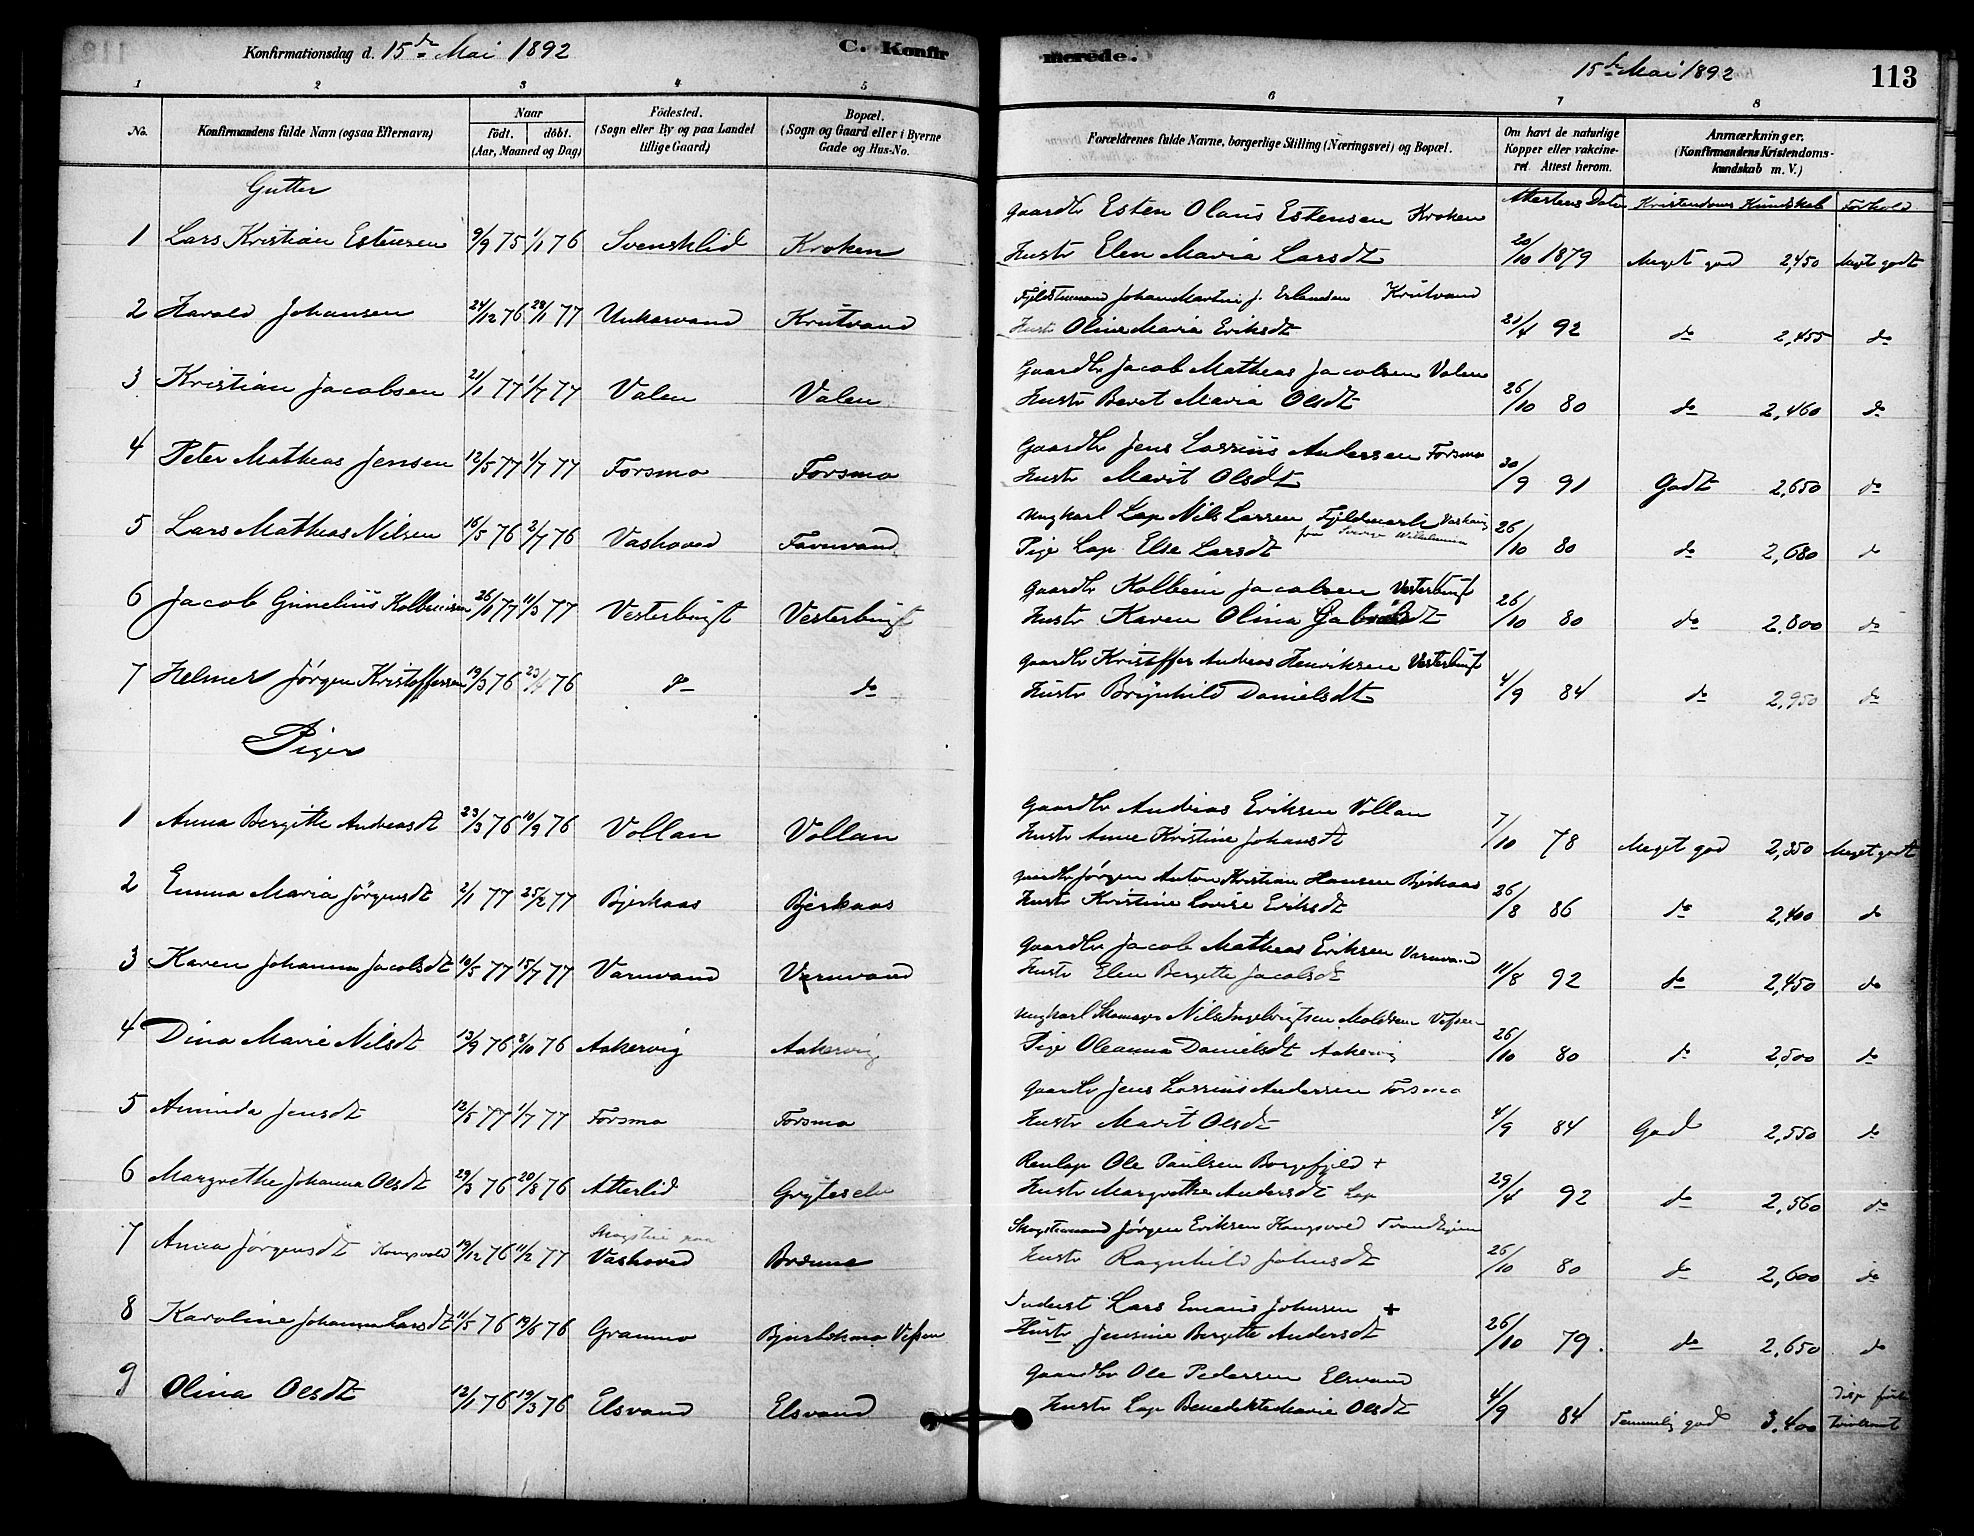 Konfirmationsdag d. 15de Mai 1892
C. Konfirmerede.
15de Mai 1892
113
1 2 3 4 5 6 7 8
No.
Konfirmandens fulde Navn (ogsaa Efternavn)
Naar
födt. döbt.
(Aar, Maaned og Dag)
Födested.
(Sogn eller By og paa Landet
tillige Gaard)
Bopæl.
(Sogn og Gaard eller i Byerne
Gade og Hus-No.
Forældrenes fulde Navne, borgerlige Stilling (Næringsvei) og Bopæl.
Om havt de naturlige
Kopper eller vakcineret
Attest herom.
Anmærkninger.
(Konfirmandens Kristendomskundskab m. V.)
Gutter
Attestens Datum Kristendoms Kundskab Forhold
1 Lars Kristian Estensen 9/9 75 1/1 76 Svensklid Kroken Gaardbr Esten Olaus Estensen Kroken
Hustr Elen Maria Larsdt 20/10 1879 Meget god 2,450 Meget godt
2 Harald Johansen 24/12 76 28/1 77 Unkervand Krutvand Fjeldstuemand Johan Martin J. Erlandsen Krutvand
Hustr Oline Maria Eriksdt 21/4 92 do 2,455 do
3 Kristian Jacobsen 21/1 77 1/7 77 Valen Valen Gaardbr Jacob Mathias Jacobsen Valen
Hustr Beret Maria Olsdt 26/10 80 do 2,460 do
4 Peter Matheas Jensen 12/5 77 1/7 77 Forsmo Forsmo Gaardbr Jens Lassius Andersen Forsmo
Hustr Marit Olsdt 30/9 91 Godt 2,650 do
5 Lars Matheas Nilsen 16/5 76 2/7 76 Vashoved Favnvand Ungkarl Lap Nils Larsen Fjeldmark
Pige Lap Else Larsdt 26/10 80 do 2,680 do
6 Jacob Gunelius Kolbeinsen 26/1 77 11/3 77 Vesterbugt Vesterbugt Gaardbr Kolbein Jacobsen Vesterbugt
Hustr Karen Olina 26/10 80 do 2,800 do
7 Helmer Jørgen Kristoffersen 19/3 76 23/4 76 do do Gaardbr Kristoffer Andreas Henriksen Vesterbugt
Hustr Brynhild Danielsdt 4/9 84 do 2,950 do
Piger
1 Anna Bergitte Andreasdt 23/3 76 10/9 76 Vollan Vollan Gaardbr Andreas Eriksen Vollan
Hustr Anne Kristine Johansdt 7/10 78 Meget god 2,350 Meget godt
2 Emma Maria Jörgensdt 2/1 77 25/2 77 Bjerkaas Bjerkaas Gaardbr Jörgen Anton Kristian Hansen Bjerkaas
Hustr Kristine Lovise Eriksdt 26/8 86 do 2,400 do
3 Karen Johanna Jacobsdt 10/5 77 15/7 77 Varnvand Varnvand Gaardbr Jacob Matheas Eriksen Varnvand
Hustr Elen Bergitte Jacobsdt 11/8 92 do 2,450 do
4 Dina Marie Nilsdt 13/9 76 8/10 76 Aakervig Aakervig Ungkarl Skomager Nils Ingebrigtsen Moldrem Vefsen
Pige Oleanna Danielsdt Aakervig 26/10 80 do 2,500 do
5 Aminda Jensdt 12/5 77 1/7 77 Forsmo Forsmo Gaardbr Jens Lassius Andersen Forsmo
Hustr Marit Olsdt 4/9 84 God 2,550 do
6 Margrethe Johanna Olsdt 29/3 76 20/8 76 Atterlid Gryteselv Renlap Ole Paulsen Borgefjeld +
Hustr Margrethe Andersdt Lap 29/4 92 do 2,560 do
7 Anna Jørgensdt Kongsvold 19/12 76 11/2 77 Vashoved Brenne Skogstuemand Jørgen Eriksen Kongsvold Trondhjem
Hustr Ragnhild Johnsdt 26/10 80 do 2,600 do
8 Karoline Johanna Larsdt 11/5 76 19/6 76 Grannæs Vefsen Inderst Lars Emaus Johnsen +
Hustr Jensine Bergitte Andersdt 26/10 79. do 2,650 do
9 Olina Olsdt 12/1 76 19/3 76 Elsvand Elsvand Gaardbr Ole Pedersen Elsvand
Hustr Lap Benedikte Marie Olsdt 4/9 84 Temmelig god 3,400